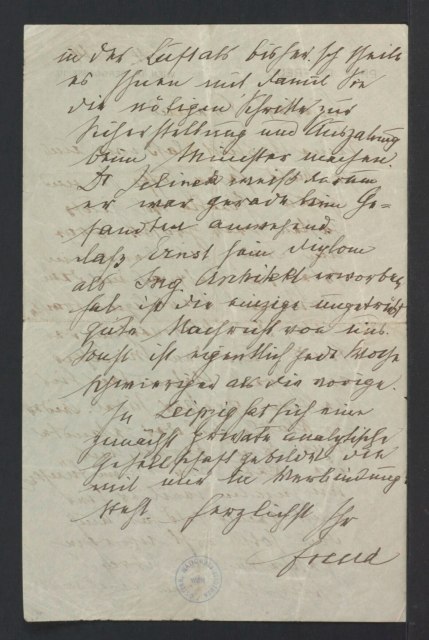 in der Luft als bisher. Ich theile
es Ihnen mit damit Sie
die nötigen Schritte zur
Sicherstellung und Auszalung
beim Minister machen.
Dr Jelinek weiß darum
er war gerade beim Ge-
sandten anwesend.
daß Ernst sein Diplom
als Ing Architekt erworben
hat ist die einzige ungetrübt
gute Nachricht von uns.
Sonst ist eigentlich jede Woche
schwieriger als die vorige.
In Leipzig hat sich eine
zunächst private analytische
Gesellschaft gebildet die
mit mir in Verbindung
steht Herzlichst Ihr
Freud